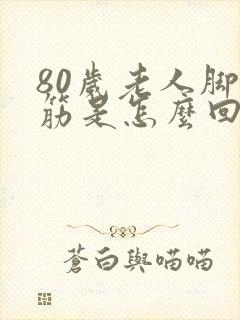 80歲老人脚
筋是怎麽回
蒼白與喵喵